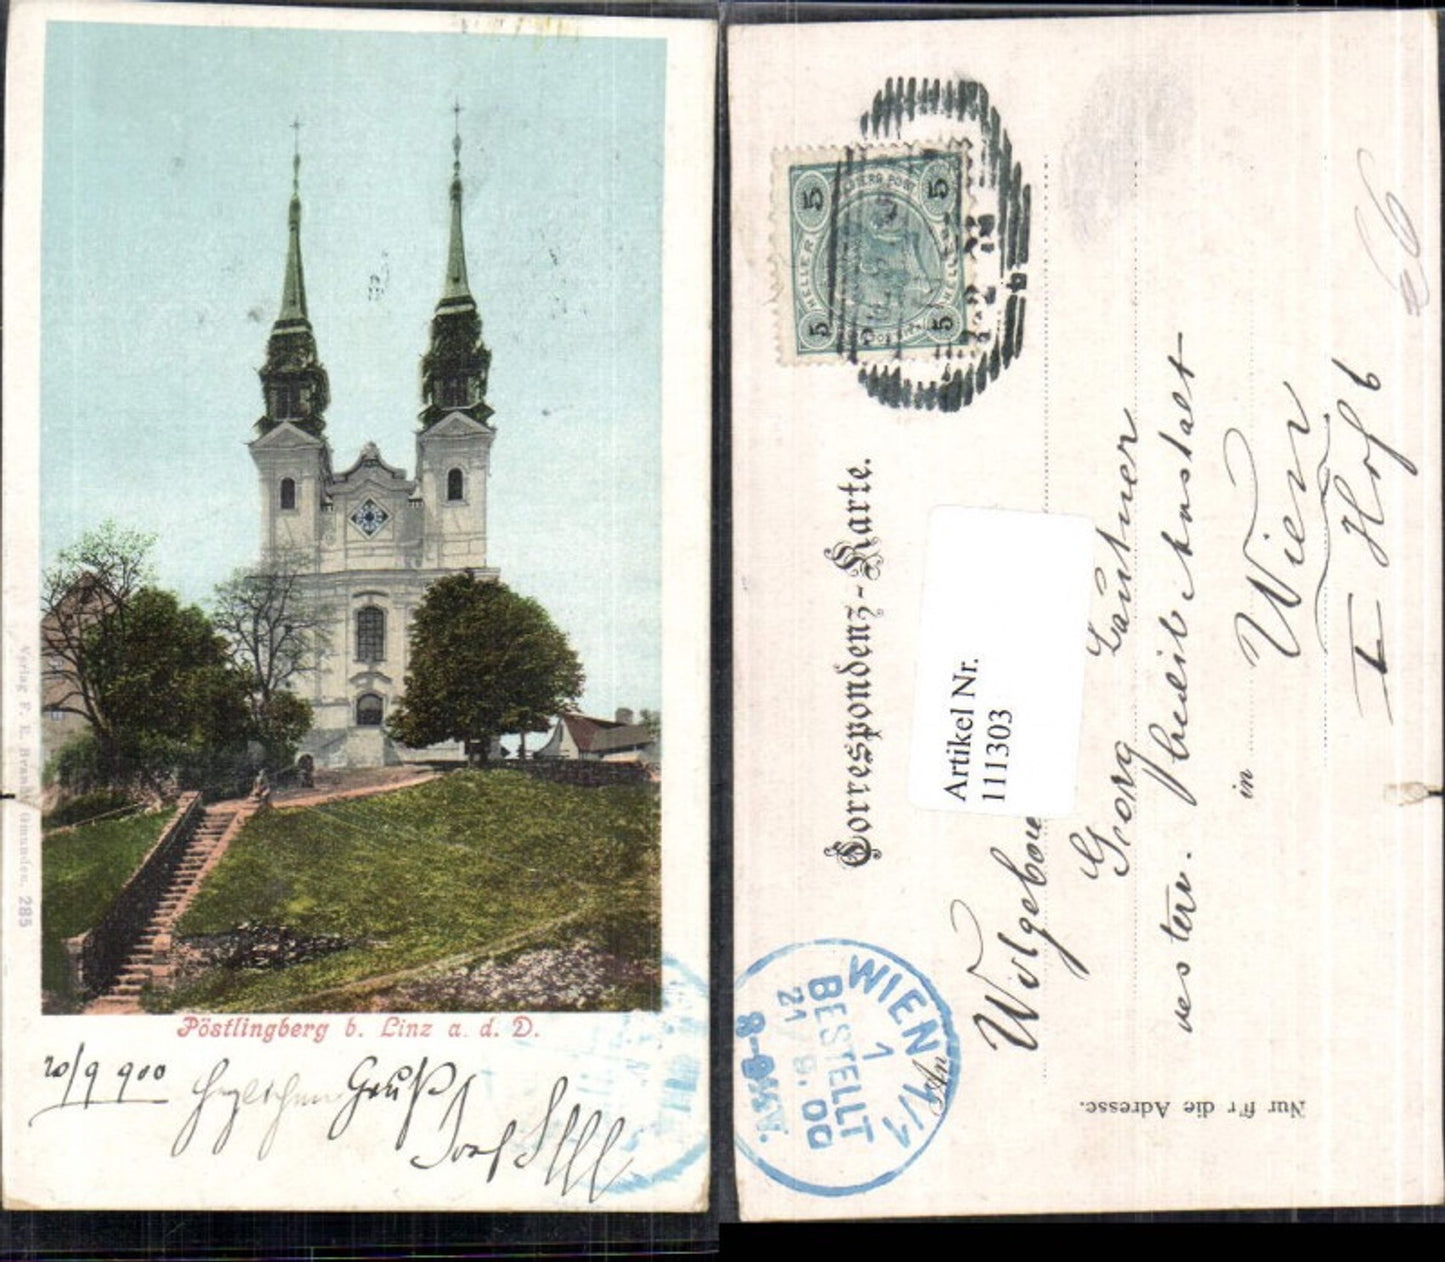 Verlag F. E. Brandt, Gmunden. 285
Pöstlingberg b. Linz a. d. D.
20/9 900 Herzlichen Gruß
Josef
5 5
HELLER HELLER
5 5
Correspondenz-Karte.
Artikel Nr.
111303
An
Georg Lautner
in Wien
I Hof 6
Nur für die Adresse.
WIEN 1/1
1
BESTELLT
21/9.00